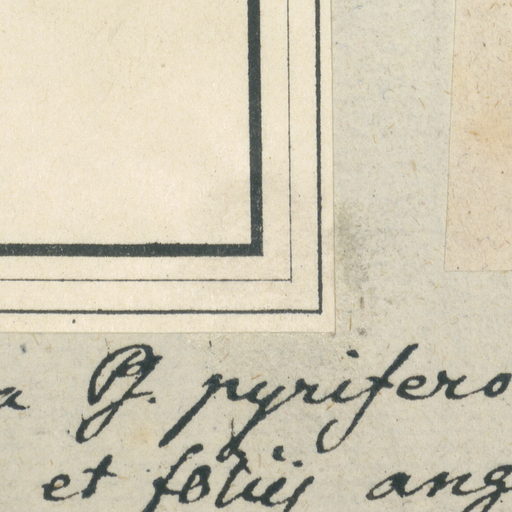 a Pf. pyrifero
et foliis ang